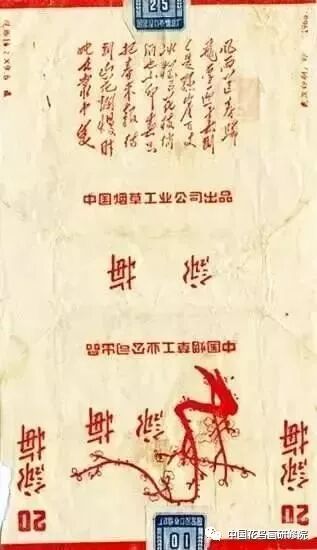 25
风雨送春归
飞雪迎春到已
是悬崖百丈
冰犹有花枝俏
俏也不争春只
把春来报待
到山花烂漫时
她在丛中笑
中国烟草工业公司出品
詠梅
中国烟草工业公司出品
詠梅
詠梅
詠梅
20
20
10
中国花鸟画研修院